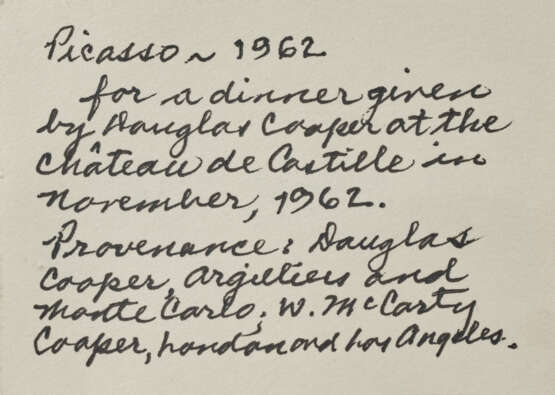 Picasso ~ 1962
for a dinner given
by Douglas Cooper at the
château de Castille in
november, 1962.
Provenance: Douglas
Cooper, Argilliers and
Monte Carlo; W. McCarty
Cooper, London and Los Angeles.